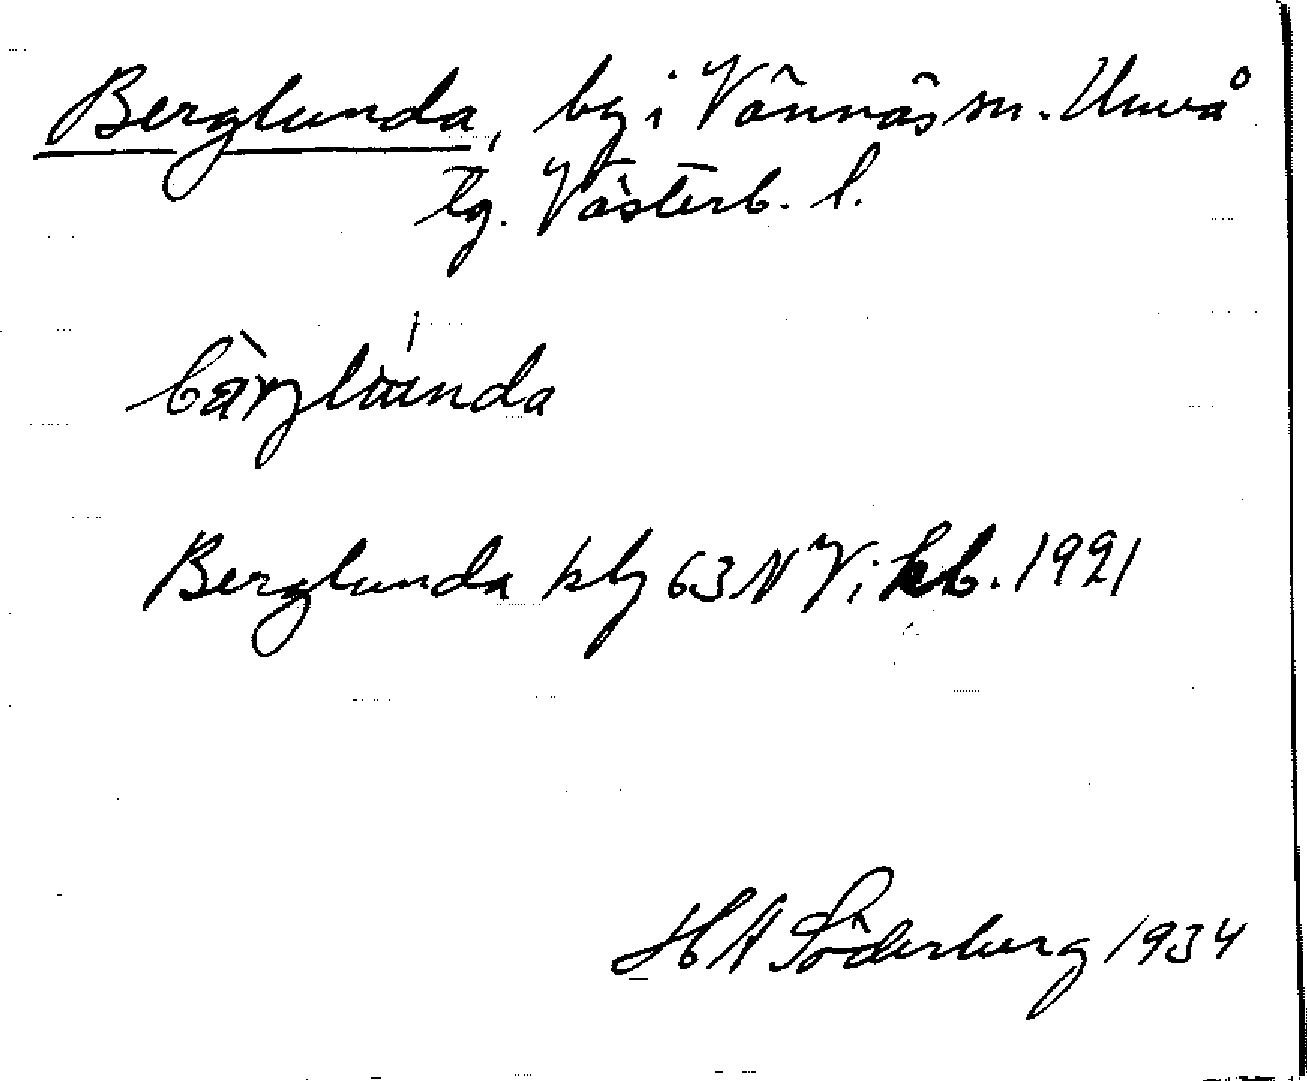 Berglunda, by i Vännäs sn. Umeå
tg. Västerb. l.
Berglunda kbg 63 NV i kb. 1921
H A Söderberg 1934